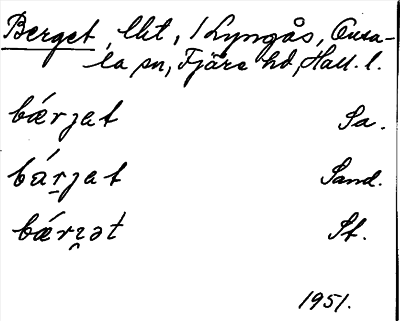 Berget, lht, i Lyngås, Onsa-
la sn, Fjäre hd, Hall. l.
bǽrjat Sa.
bárjat Sand.
bǽrʒət St.
1951.